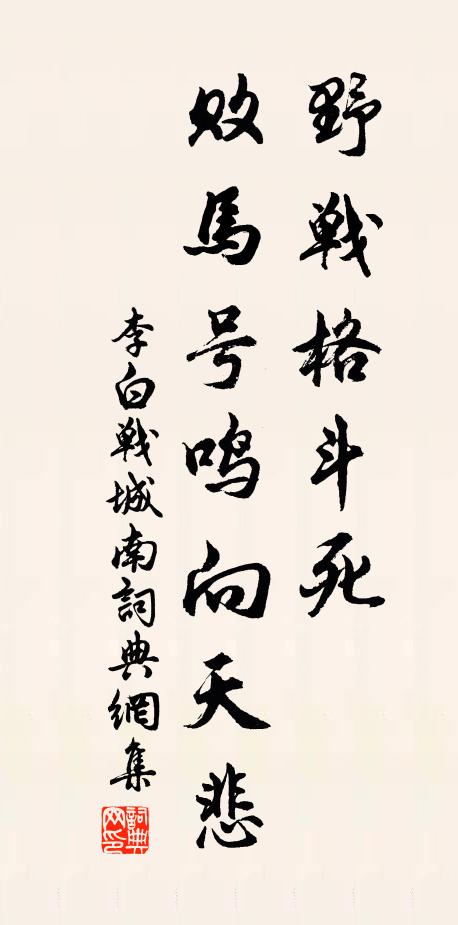 野戰格斗死
敗馬号鳴向天悲
李白戰城南詞典網集
詞典网印